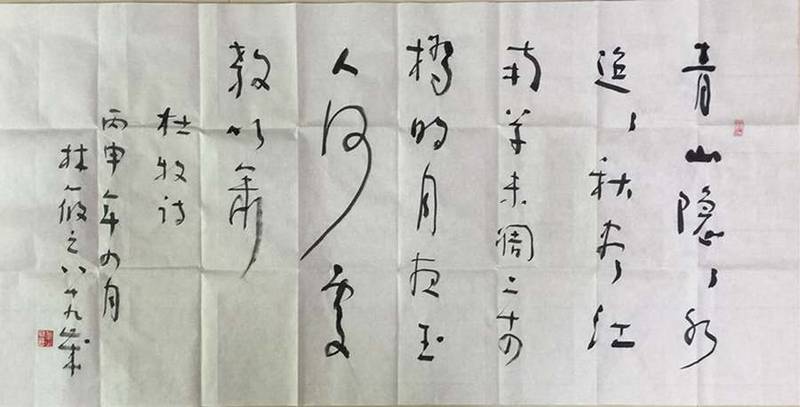 青山隐々水
迢々秋尽江
南草未凋二十四
桥明月夜玉
人何处
教吹箫
杜牧诗
丙申年四月
林筱之八十九岁